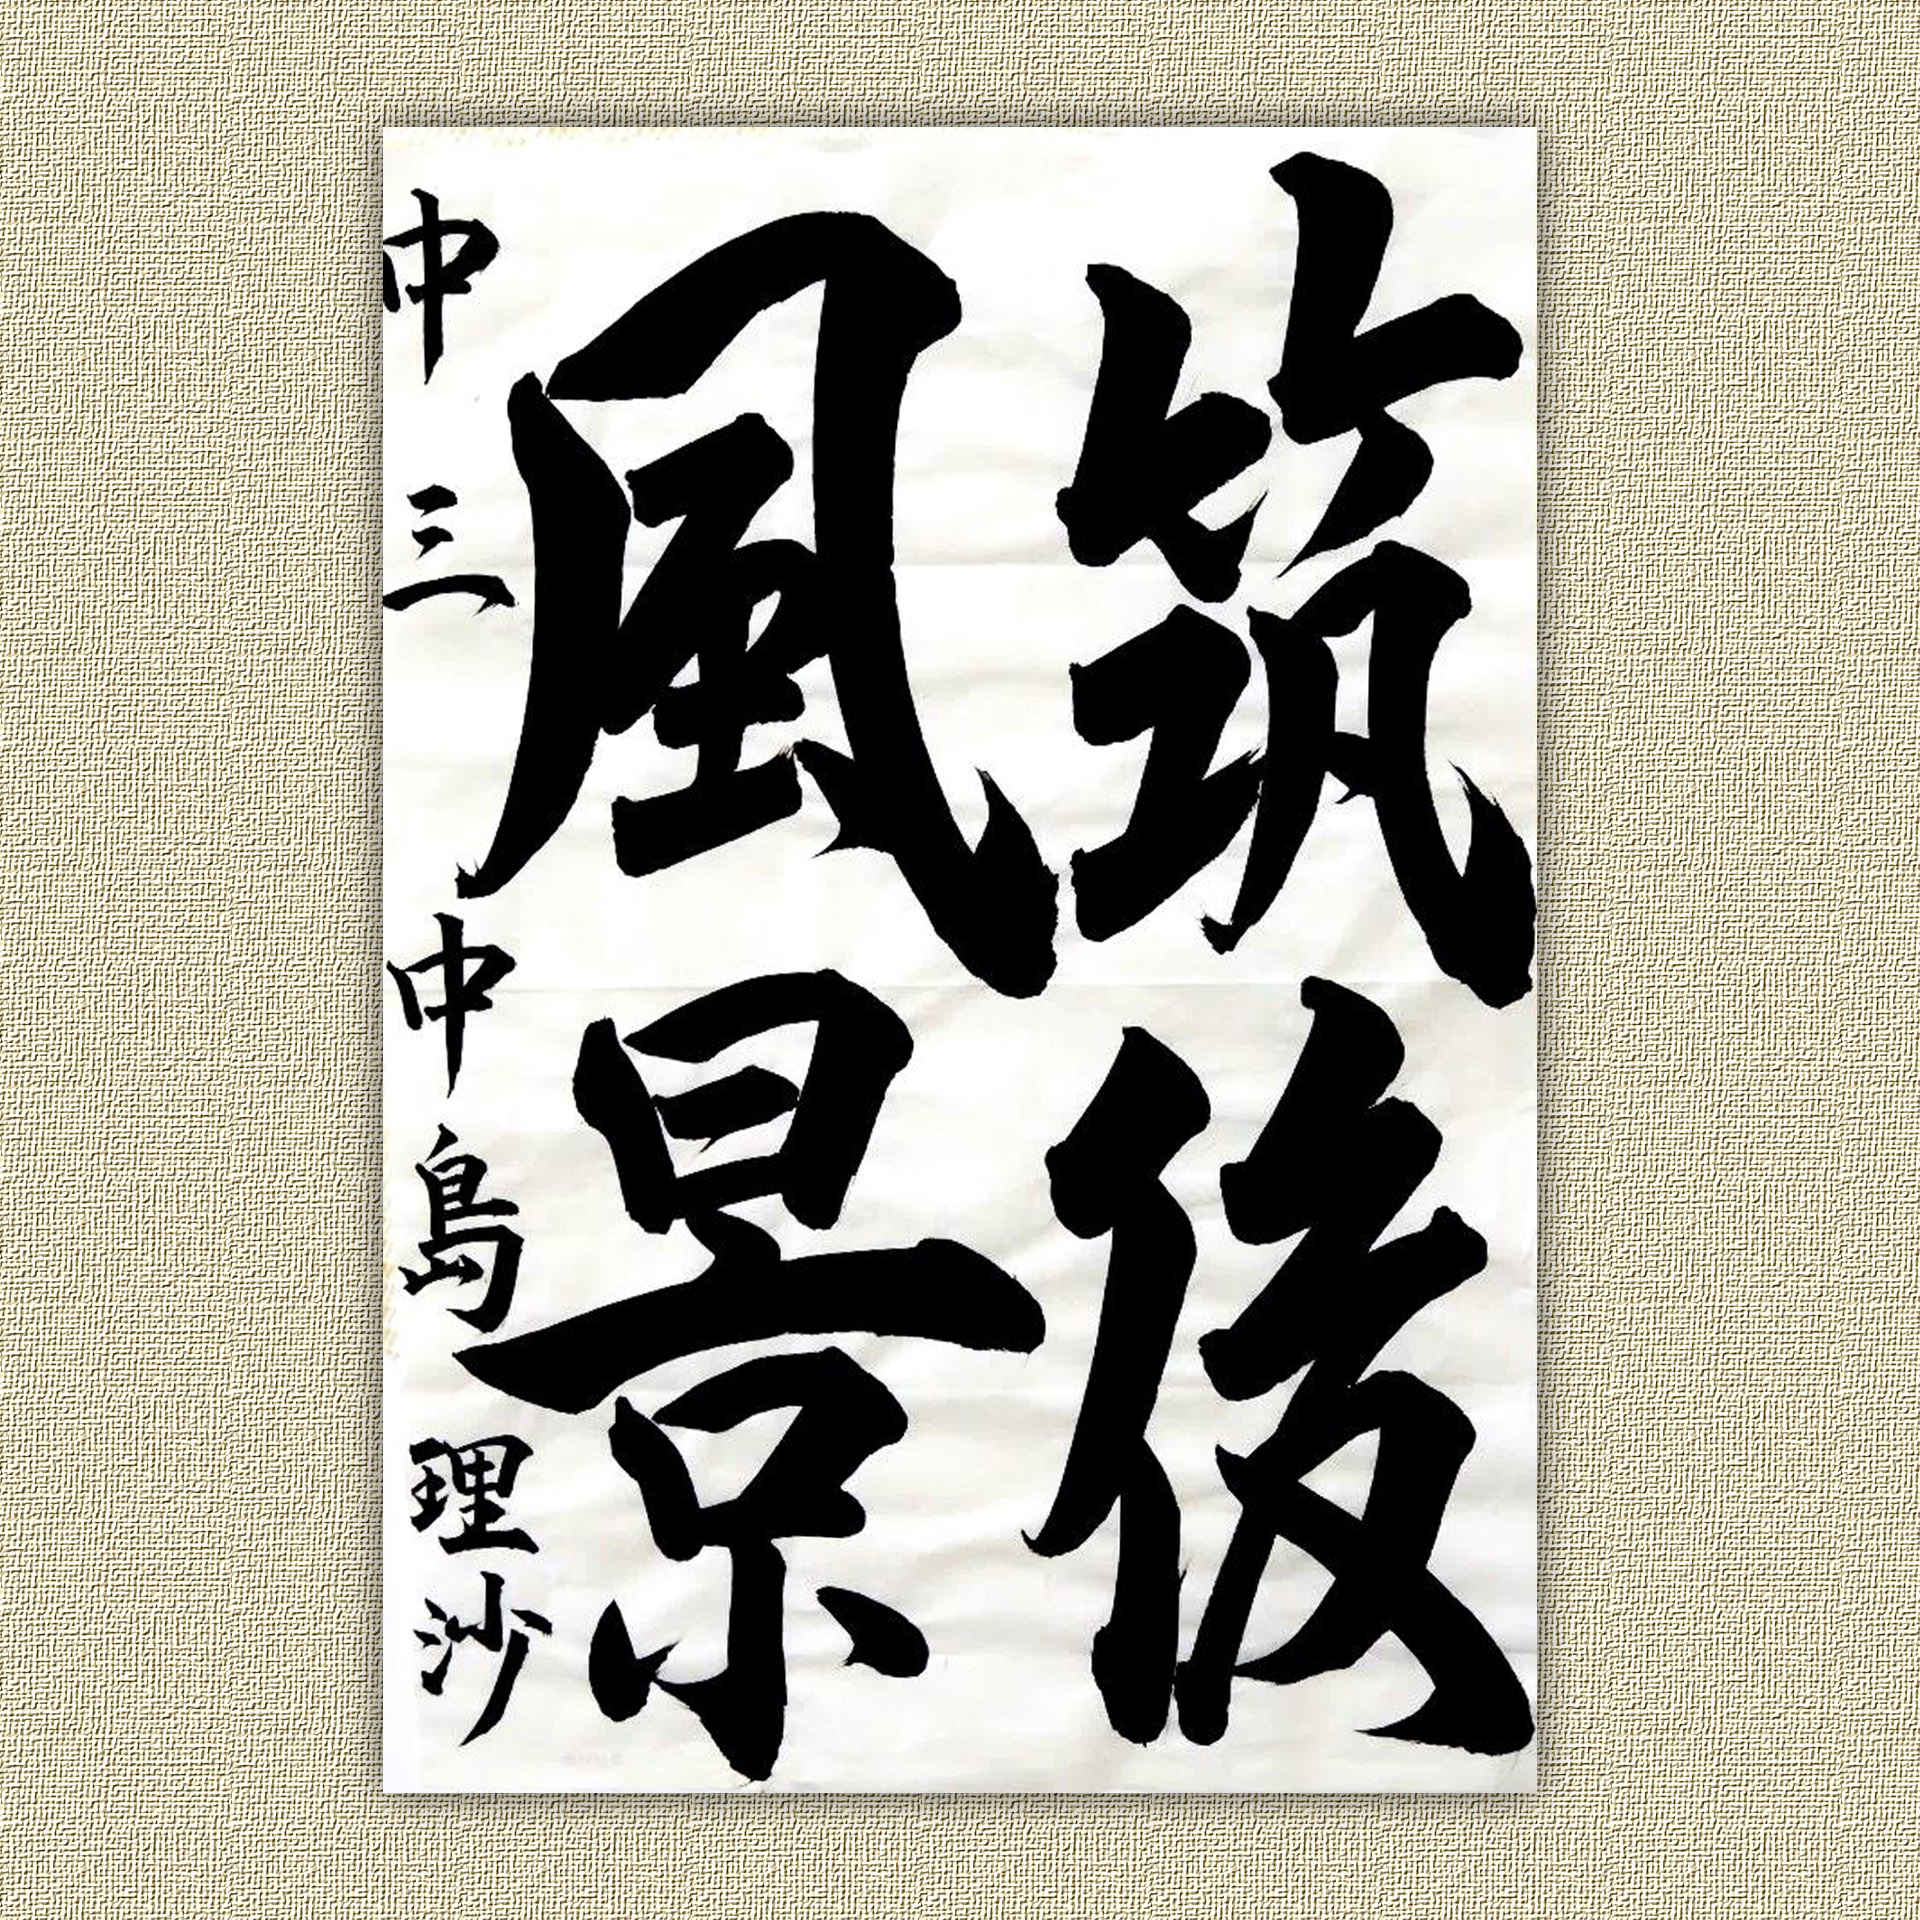 筑後
風景
中三 中島理沙